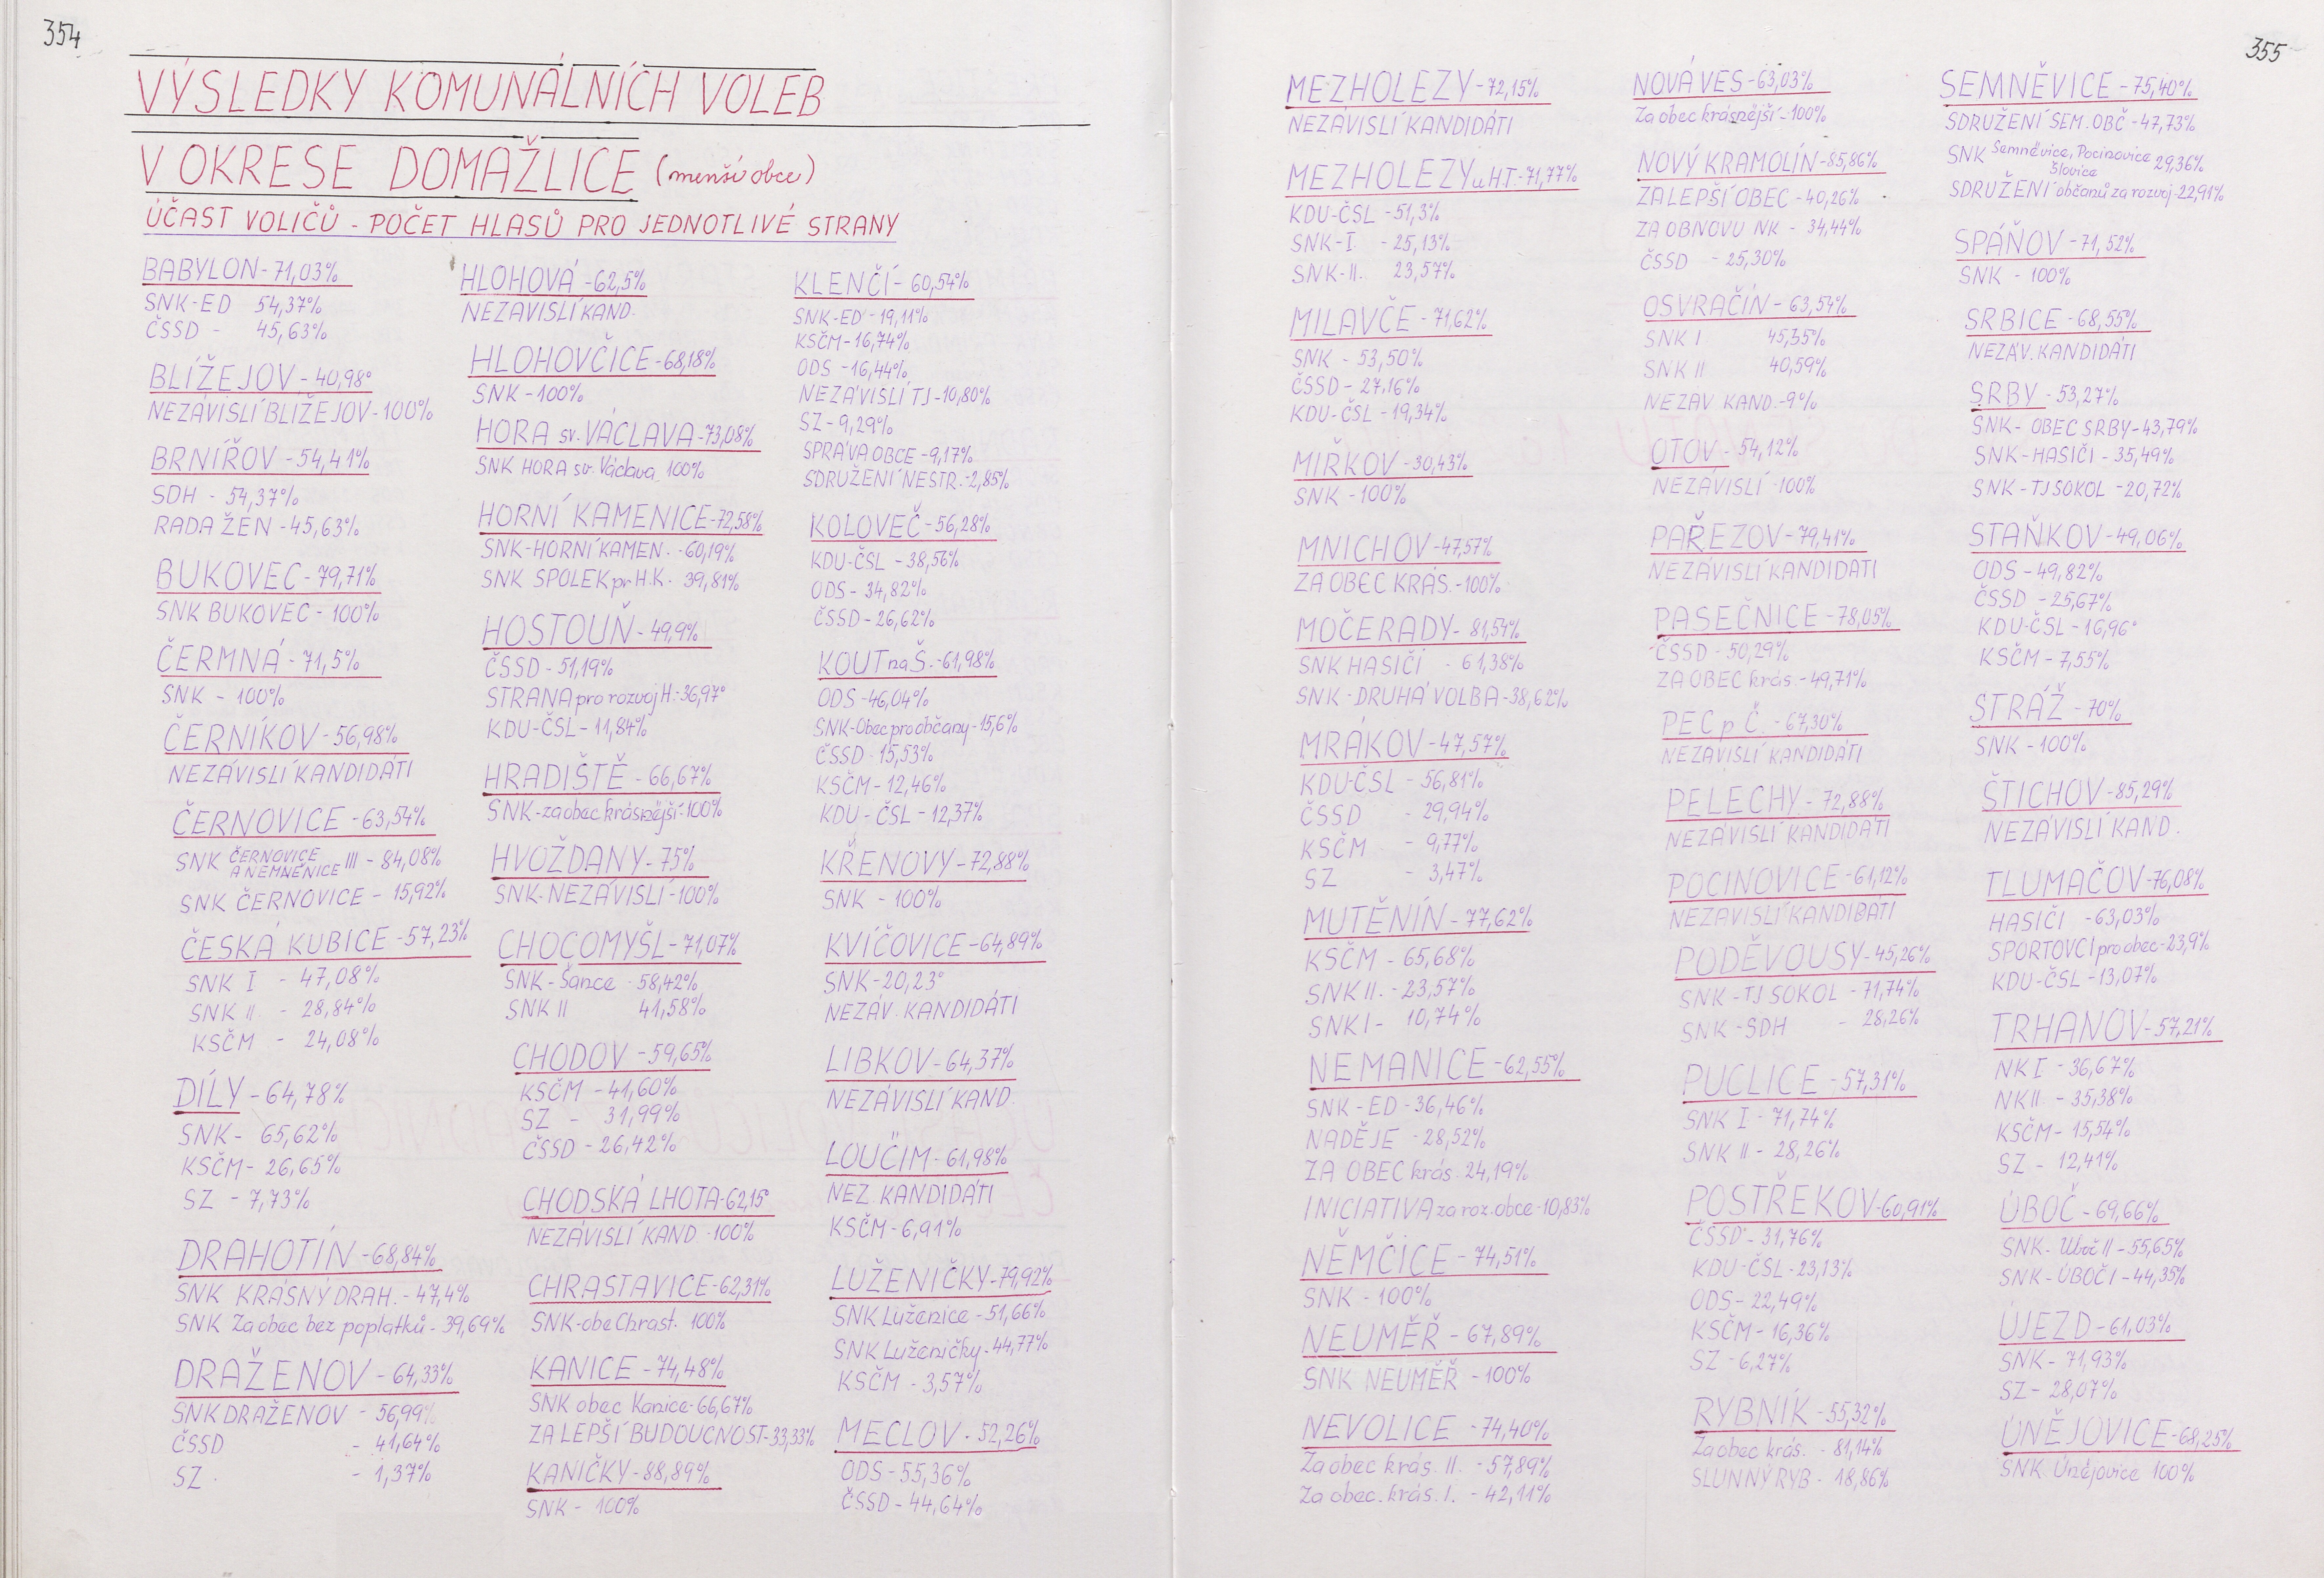 354
VÝSLEDKY KOMUNÁLNÍCH VOLEB
V OKRESE DOMAŽLICE (menší obce)
ÚČAST VOLIČŮ - POČET HLASŮ PRO JEDNOTLIVÉ STRANY
BABYLON - 71,03%
SNK-ED 54,37%
ČSSD - 45,63%
BLÍŽEJOV - 40,98°
NEZÁVISLÍ BLÍŽEJOV - 100%
BRNÍŘOV - 54,41%
SDH - 54,37%
RADA ŽEN - 45,63%
BUKOVEC - 79,71%
SNK BUKOVEC - 100%
ČERMNÁ - 71,5%
SNK - 100%
ČERNÍKOV - 56,98%
NEZÁVISLÍ KANDIDÁTI
ČERNOVICE - 63,54%
SNK ČERNOVICE A NEMNĚNICE III - 84,08%
SNK ČERNOVICE - 15,92%
ČESKÁ KUBICE - 57,23%
SNK I - 47,08%
SNK II - 28,84%
KSČM - 24,08%
DÍLY - 64,78%
SNK - 65,62%
KSČM - 26,65%
SZ - 7,73%
DRAHOTÍN - 68,84%
SNK KRÁSNÝ DRAH. - 47,4%
SNK Za obec bez poplatků - 39,69%
DRAŽENOV - 64,33%
SNK DRAŽENOV - 56,99%
ČSSD - 41,64%
SZ. - 1,37%
HLOHOVÁ - 62,5%
NEZÁVISLÍ KAND.
HLOHOVČICE - 68,18%
SNK - 100%
HORA sv. VÁCLAVA - 73,08%
SNK HORA sv. Václava 100%
HORNÍ KAMENICE - 72,58%
SNK-HORNÍ KAMEN. - 60,19%
SNK SPOLEK pr. H.K. 39,81%
HOSTOUŇ - 49,9%
ČSSD - 51,19%
STRANA pro rozvoj H. - 36,97°
KDU-ČSL - 11,84%
HRADIŠTĚ - 66,67%
SNK-za obec krásnější - 100%
HVOŽDANY - 75%
SNK-NEZÁVISLÍ - 100%
CHOCOMYŠL - 71,07%
SNK-Šance - 58,42%
SNK II 41,58%
CHODOV - 59,65%
KSČM - 41,60%
SZ - 31,99%
ČSSD - 26,42%
CHODSKÁ LHOTA - 62,15°
NEZÁVISLÍ KAND - 100%
CHRASTAVICE - 62,31%
SNK-obe Chrast. 100%
KANICE - 74,48%
SNK obec Kanice - 66,67%
ZA LEPŠÍ BUDOUCNOST - 33,33%
KANIČKY - 88,89%
SNK - 100%
KLENČÍ - 60,54%
SNK-ED - 19,11%
KSČM - 16,74%
ODS - 16,44%
NEZÁVISLÍ TJ - 10,80%
SZ - 9,29%
SPRÁVA OBCE - 9,17%
SDRUŽENÍ NESTR. - 2,85%
KOLOVEČ - 56,28%
KDU-ČSL - 38,56%
ODS - 34,82%
ČSSD - 26,62%
KOUT na Š. - 61,98%
ODS - 46,04%
SNK-Obec pro občany - 15,6%
ČSSD - 15,53%
KSČM - 12,46%
KDU - ČSL - 12,37%
KŘENOVY - 72,88%
SNK - 100%
KVÍČOVICE - 64,89%
SNK - 20,23°
NEZÁV. KANDIDÁTI
LIBKOV - 64,37%
NEZÁVISLÍ KAND.
LOUČIM - 61,98%
NEZ. KANDIDÁTI
KSČM - 6,91%
LUŽENIČKY - 79,92%
SNK Luženice - 51,66%
SNK Luženičky - 44,77%
KSČM - 3,57%
MECLOV - 52,26%
ODS - 55,36%
ČSSD - 44,64%
355
MEZHOLEZY - 72,15%
NEZÁVISLÍ KANDIDÁTI
MEZHOLEZY u H.T. - 71,77%
KDU-ČSL - 51,3%
SNK-I - 25,13%
SNK-II. 23,57%
MILAVČE - 71,62%
SNK - 53,50%
ČSSD - 27,16%
KDU-ČSL - 19,34%
MÍRKOV - 30,43%
SNK - 100%
MNICHOV - 47,57%
ZA OBEC KRÁS. - 100%
MOČERADY - 81,54%
SNK HASIČI - 61,38%
SNK - DRUHÁ VOLBA - 38,62%
MRÁKOV - 47,57%
KDU-ČSL - 56,81%
ČSSD - 29,94%
KSČM - 9,77%
SZ - 3,47%
MUTĚNÍN - 77,62%
KSČM - 65,68%
SNK II. - 23,57%
SNK I - 10,74%
NEMANICE - 62,55%
SNK - ED - 36,46%
NADĚJE - 28,52%
ZA OBEC krás. 24,19%
INICIATIVA za roz. obce - 10,83%
NĚMČICE - 74,51%
SNK - 100%
NEUMĚŘ - 67,89%
SNK NEUMĚŘ - 100%
NEVOLICE - 74,40%
Za obec krás. II. - 57,89%
Za obec. krás. I. - 42,11%
NOVÁ VES - 63,03%
Za obec krásnější - 100%
NOVÝ KRAMOLÍN - 85,86%
ZA LEPŠÍ OBEC - 40,26%
ZA OBNOVU NK - 34,44%
ČSSD - 25,30%
OSVRAČÍN - 63,54%
SNK I 45,35%
SNK II 40,59%
NEZÁV KAND. - 9%
OTOV - 54,12%
NEZÁVISLÍ - 100%
PAŘEZOV - 79,41%
NEZÁVISLÍ KANDIDÁTI
PASEČNICE - 78,05%
ČSSD - 50,29%
ZA OBEC krás. - 49,71%
PEC p Č. - 67,30%
NEZÁVISLÍ KANDIDÁTI
PELECHY - 72,88%
NEZÁVISLÍ KANDIDÁTI
POCINOVICE - 61,12%
NEZÁVISLÍ KANDIDÁTI
PODĚVOUSY - 45,26%
SNK - TJ SOKOL - 71,74%
SNK - SDH - 28,26%
PUCLICE - 57,31%
SNK I - 71,74%
SNK II - 28,26%
POSTŘEKOV - 60,91%
ČSSD - 31,76%
KDU-ČSL - 23,13%
ODS - 22,49%
KSČM - 16,36%
SZ - 6,27%
RYBNÍK - 55,32%
Za obec krás. - 81,14%
SLUNNÝ RYB - 18,86%
SEMNĚVICE - 75,40%
SDRUŽENÍ SEM. OBČ - 47,73%
SNK Semněvice, Pocinovice Šlovice 29,36%
SDRUŽENÍ občanů za rozvoj - 22,91%
SPÁŇOV - 71,52%
SNK - 100%
SRBICE - 68,55%
NEZÁV. KANDIDÁTI
SRBY - 53,27%
SNK - OBEC SRBY - 43,79%
SNK - HASIČI - 35,49%
SNK - TJ SOKOL - 20,72%
STAŇKOV - 49,06%
ODS - 49,82%
ČSSD - 25,67%
KDU-ČSL - 16,96°
KSČM - 7,55%
STRÁŽ - 70%
SNK - 100%
ŠTICHOV - 85,29%
NEZÁVISLÍ KAND.
TLUMAČOV - 76,08%
HASIČI - 63,03%
SPORTOVCI pro obec - 23,9%
KDU-ČSL - 13,07%
TRHANOV - 57,21%
NK I - 36,67%
NK II - 35,38%
KSČM - 15,54%
SZ - 12,41%
ÚBOČ - 69,66%
SNK - Úboč II - 55,65%
SNK - ÚBOČ I - 44,35%
ÚJEZD - 61,03%
SNK - 71,93%
SZ - 28,07%
ÚNĚJOVICE - 68,25%
SNK Únějovice 100%